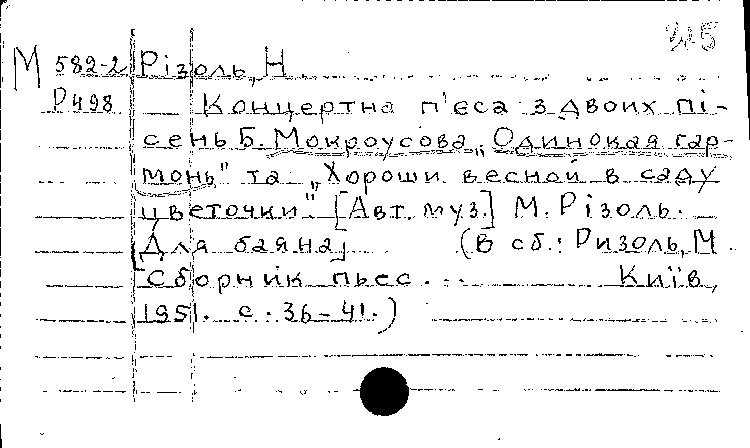 325
М 582-2 Різоль, Н.
Р498 Концертна п'єса з двоих пі-
сень Б. Мокроусова „Одинокая гар-
монь" та „Хороши весной в саду
цветочки". [Авт. муз.] М. Різоль.
[Для баяна] (В сб.: Ризоль, М.
Сборник пьес... Київ,
1951. с. 36-41.)